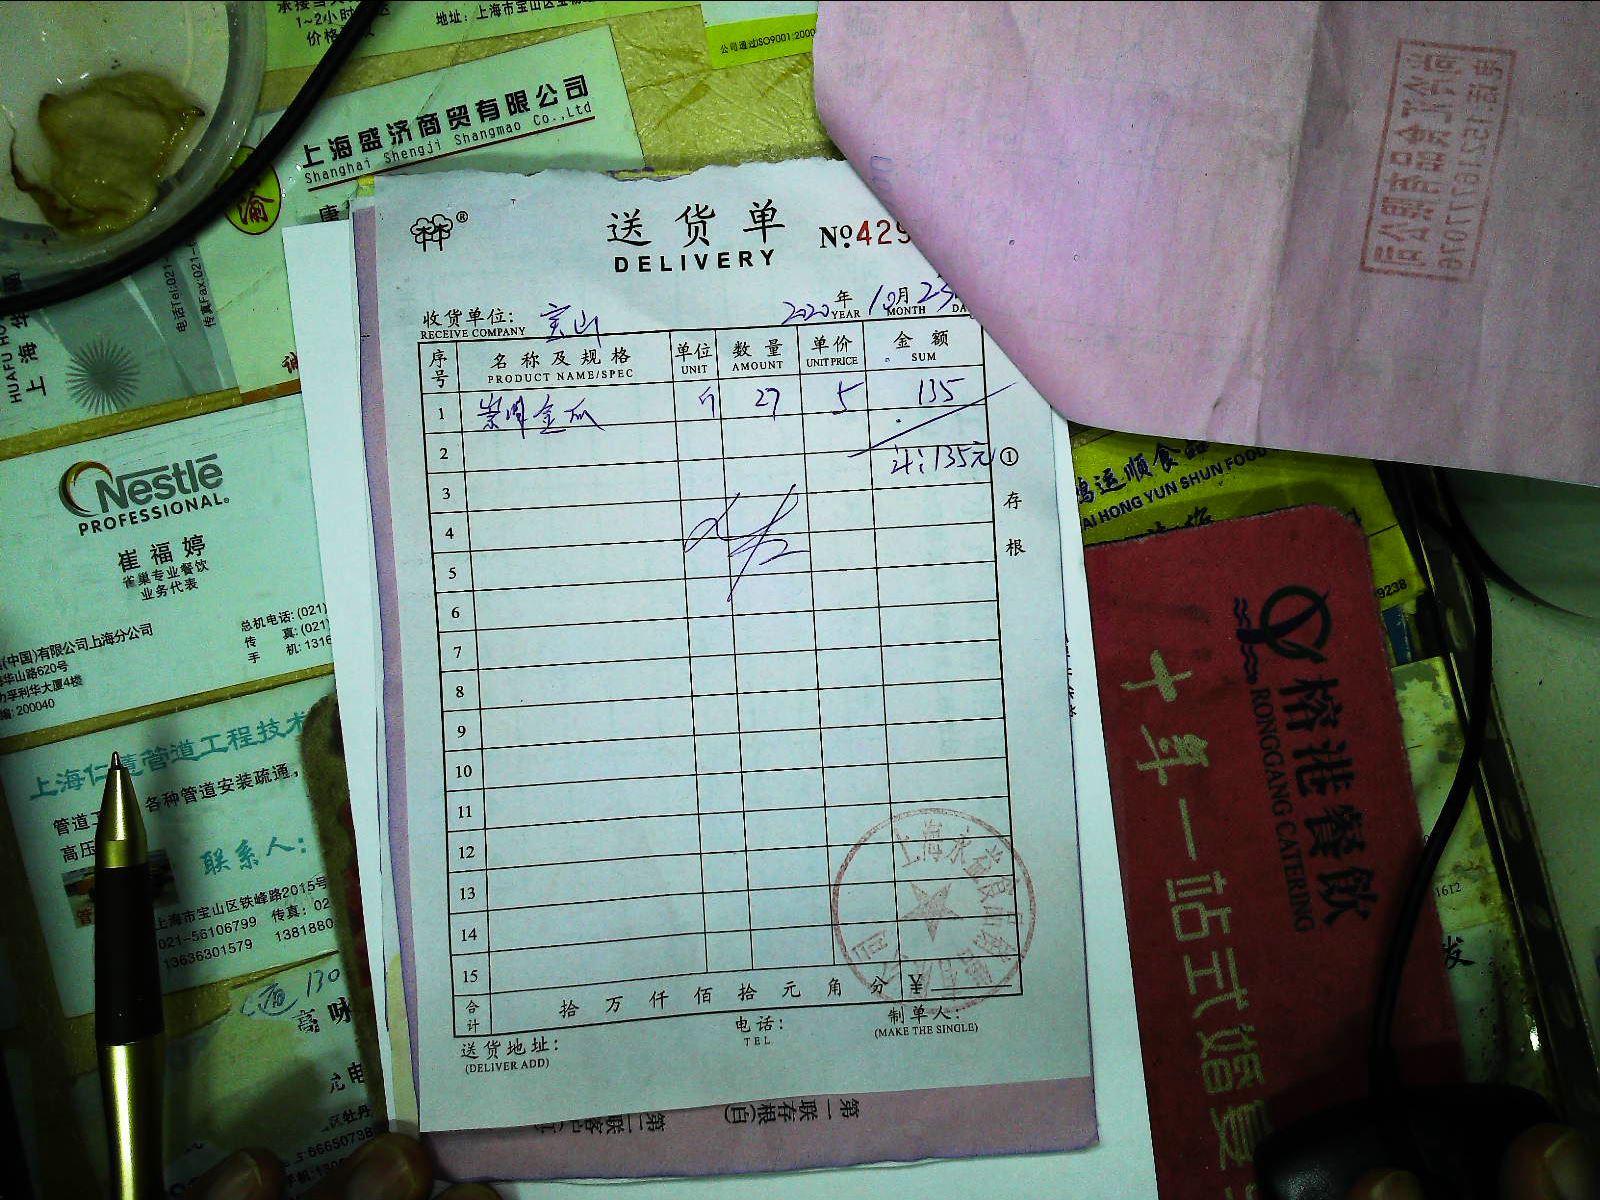 1~2小时
地址：上海市宝山区
公司通过ISO9001:2000
上海盛济商贸有限公司
Shanghai Shengji Shangmao Co.,Ltd
渝
唐
电话Tel:021-
传真Fax:021-
HUAFU
上海华
诚
Nestlé
PROFESSIONAL®
崔福婷
雀巢专业餐饮
业务代表
(中国)有限公司上海分公司
华山路620号
孚利华大厦4楼
编: 200040
总机电话: (021)
传 真: (021)
手 机: 1316
上海仁 管道工程技术
管道工 各种管道安装疏通,
高压
联系人:
管
上海市宝山区铁峰路2015号
021-56106799 传真: 02
13636301579 1381880
130
高 味
元 电
区牡丹
66650738
®
送货单
DELIVERY
№ 429
收货单位: 宝山
RECEIVE COMPANY
2020 年 10 月 25
YEAR MONTH DA
序号 名称及规格 单位 数量 单价 金额
PRODUCT NAME/SPEC UNIT AMOUNT UNIT PRICE SUM
1 崇明金瓜 斤 27 5 135
2
计: 135元
3
4
5
6
7
8
9
10
11
12
13
14
15
合计 拾 万 仟 佰 拾 元 角 分 ¥
送货地址:
(DELIVER ADD)
电话:
TEL
制单人:
(MAKE THE SINGLE)
① 存根
上海永
第一联存根(白)
第二联客户
电话:15216771076
鸿运顺食品
AI HONG YUN SHUN FOOD
9238
榕港餐飲
RONGGANG CATERING
十年一站式婚宴
1612
发